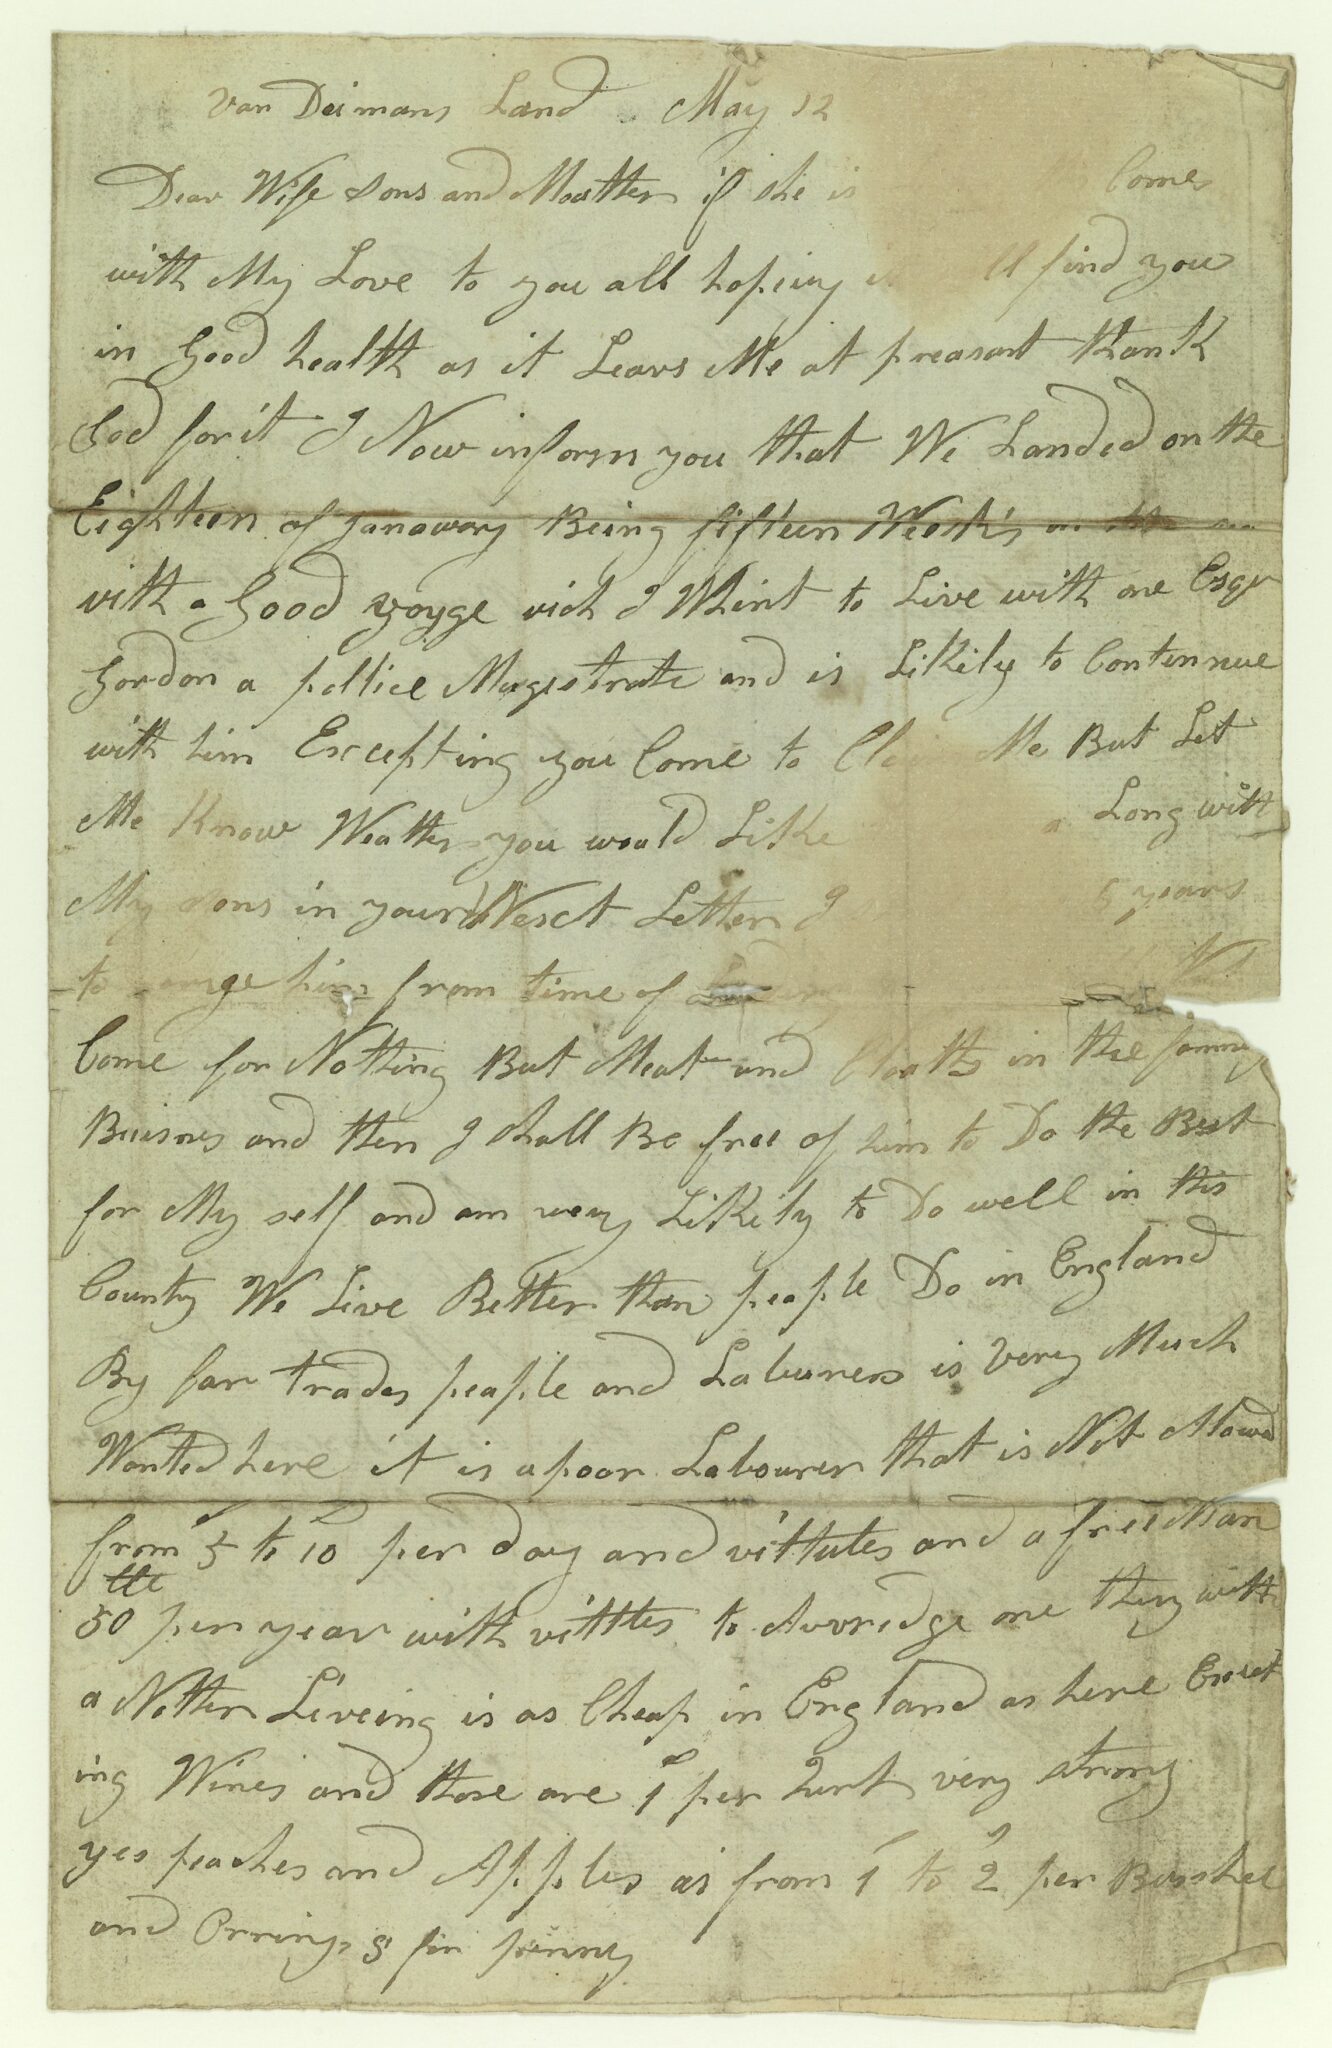 Van Deimans Land May 12
Dear Wife Sons and Moutter if she is Comes
with My Love to you all hoping find you
in Good health as it Leavs Me at preasant thank
God for it I Now inform you that We Landed on the
Eighteen of Janawary Being fifteen Weeks on the sea
with a Good yoyge vich I Whint to Live with one Esqr
Gordon a pollice Magestrate and is Likily to Contennue
with him Excepting you Come to Me But Let
Me Know Weatter you would Like Long with
My Sons in your Nesct Letter I 5 years
to him from time of
Come for Nothing But Meat and Cloaths in the
Buisnes and then I shall Be free of him to Do the Best
for My self and am very Likily to Do well in this
Country We Live Better than people Do in England
By far trades people and Laburers is very Much
Wanted here it is a poor Labourer that is Not Alowed
from 5 to 10 per day and vittules and a free Man
50 per year with vittles to Avvredge one they with
a Notter Liveing is as Cheap in England as here Excet
ing Wines and those are 1 per Qurt very strong
yes peaches and Apples as from 1 to 2 per Bushel
and Orrings 8 for penny